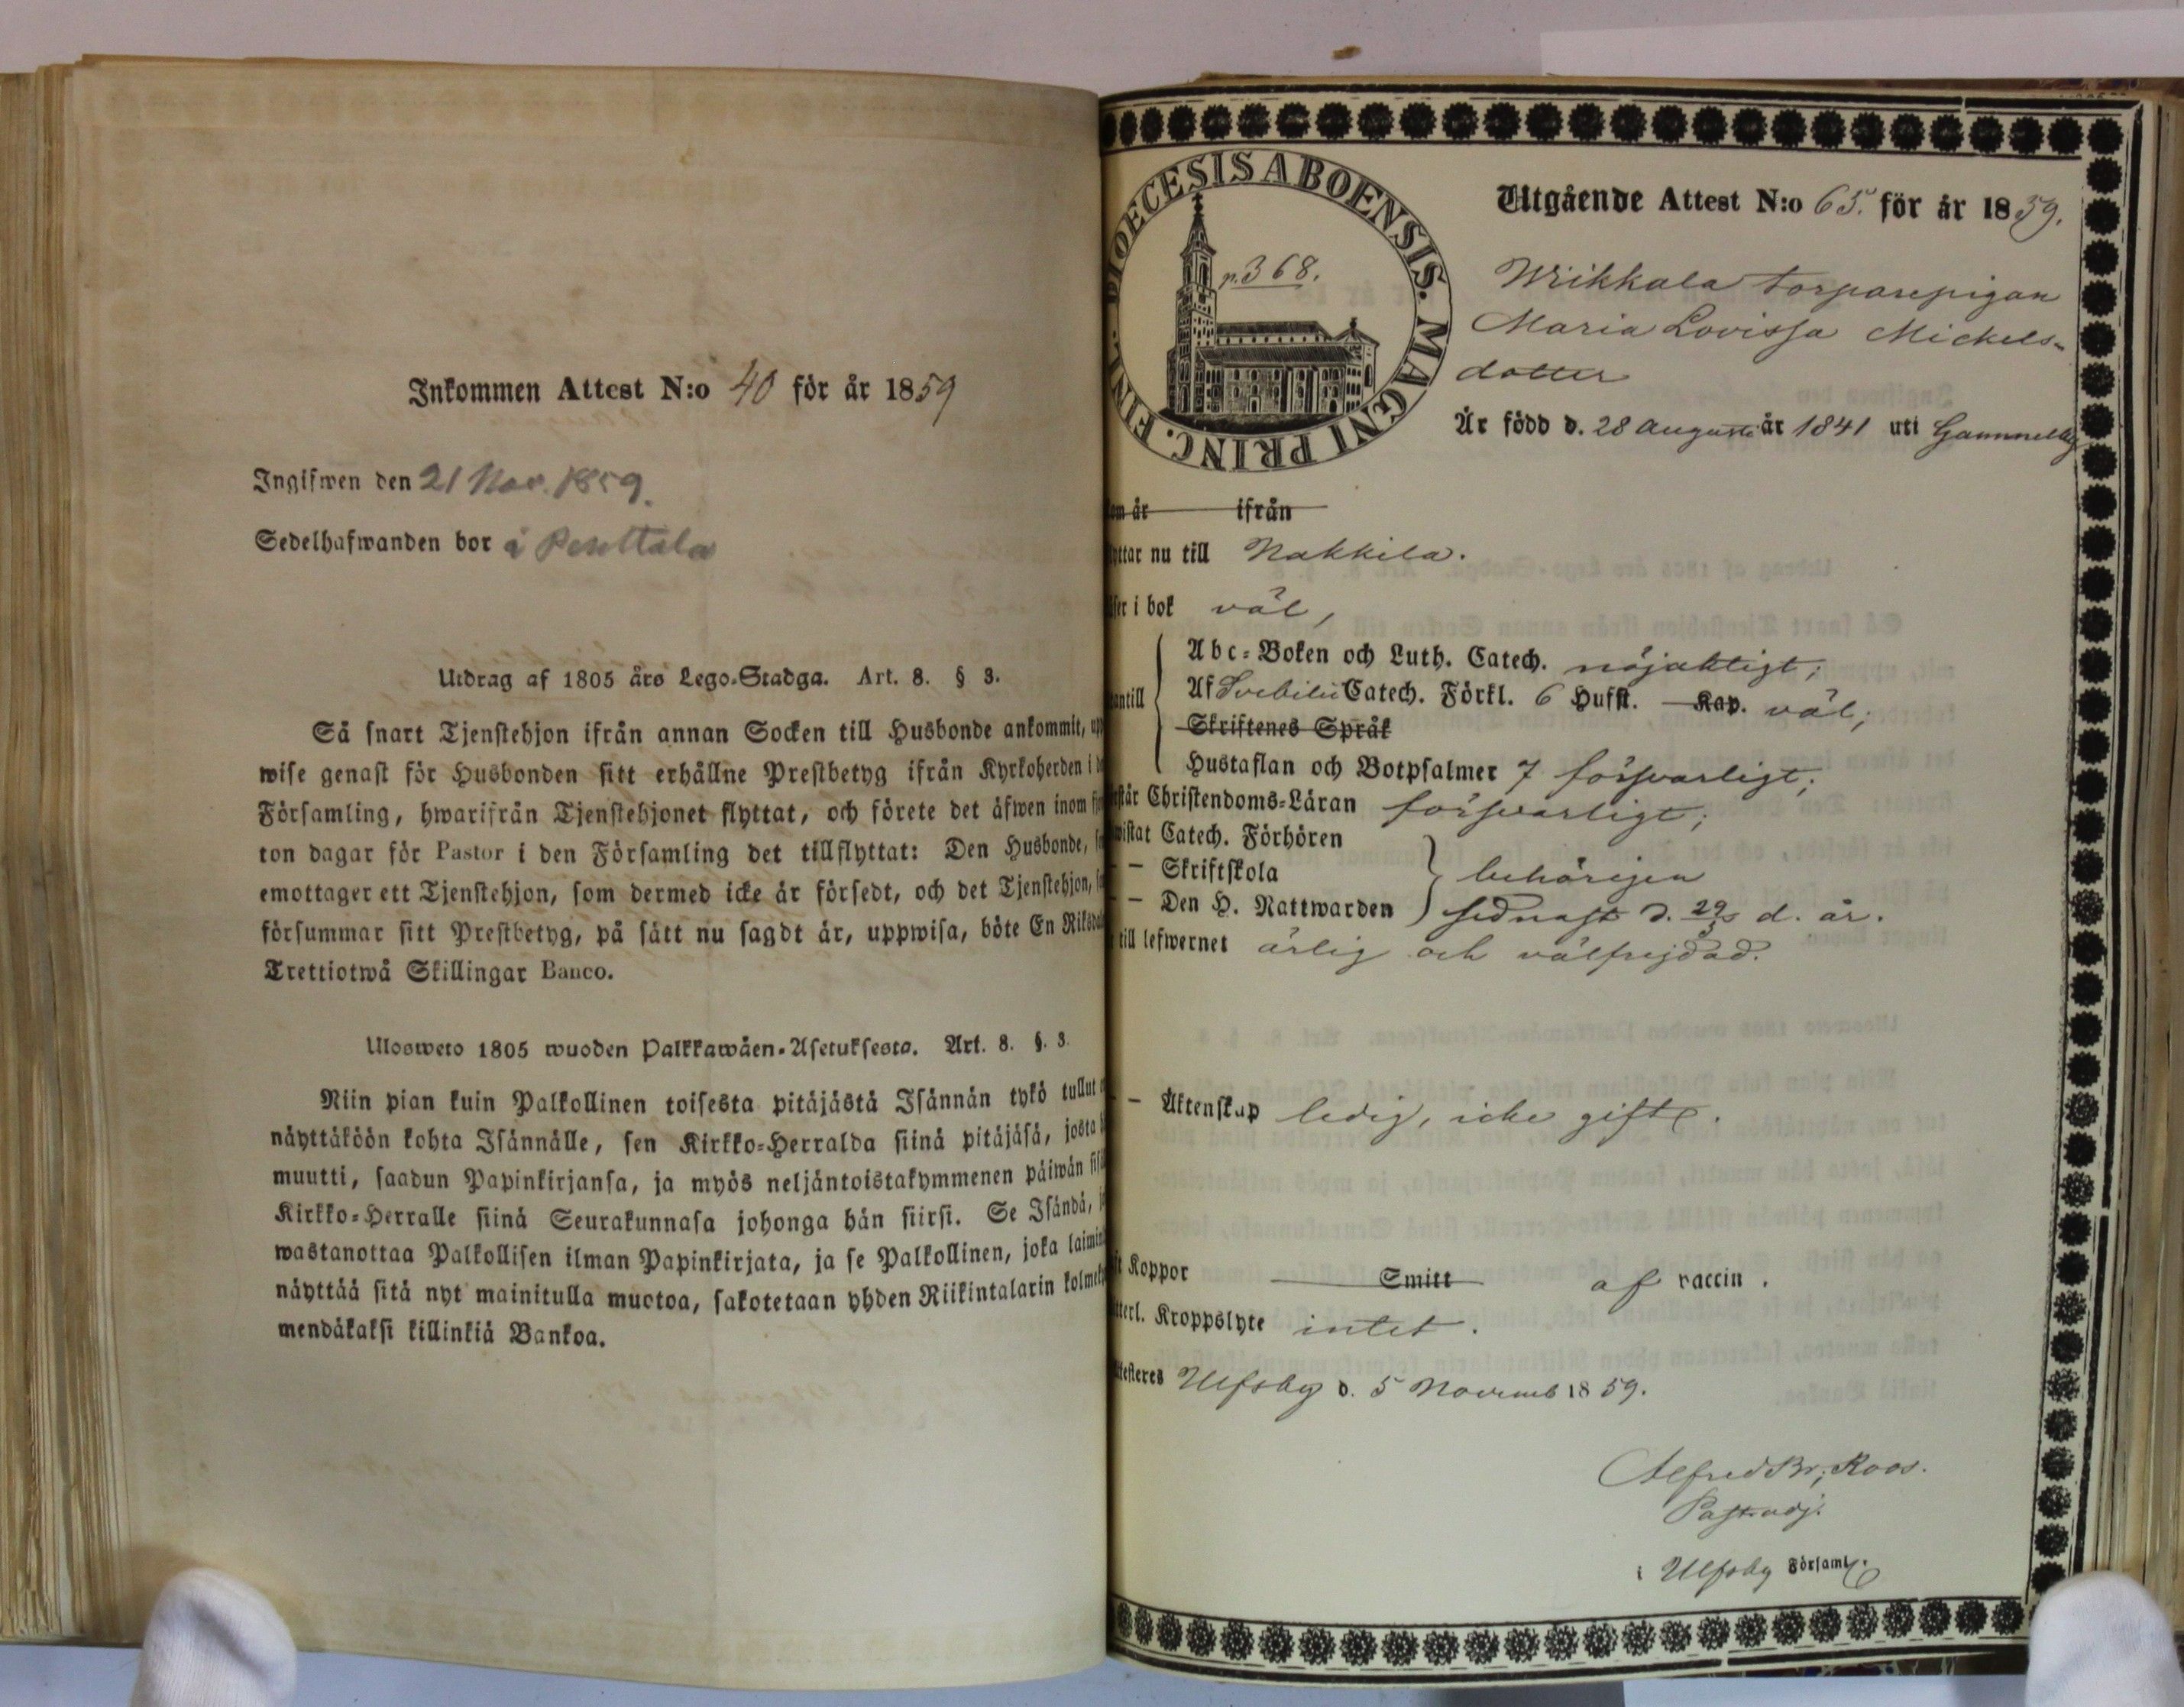 Inkommen Attest N:o 40 för år 1859
Ingifwen den 21 Nov. 1859.
Sedelhafwanden bor å Penttala
Utdrag af 1805 års Lego-Stadga. Art. 8. § 3.
Så snart Tjenstehjon ifrån annan Socken till Husbonde ankommit, upp
wise genast för Husbonden sitt erhållne Prestbetyg ifrån Kyrkoherden i
Församling, hwarifrån Tjenstehjonet flyttat, och förete det äfwen inom
ton dagar för Pastor i den Församling det tillflyttat: Den Husbonde,
emottager ett Tjenstehjon, som dermed icke är försedt, och det Tjenstehjon,
försummar sitt Prestbetyg, på sätt nu sagdt är, uppwisa, böte En Riksda
Trettiotwå Skillingar Banco.
Ulosweto 1805 wuoden Palkkawäen-Asetuksesta. Art. 8. §. 3.
Niin pian kuin Palkollinen toisesta pitäjästä Isännän tykö tullut
näyttäköön kohta Isännälle, sen Kirkko-Herralda siinä pitäjäsä, josta
muutti, saadun Papinkirjansa, ja myös neljäntoistakymmenen päiwän
Kirkko-Herralle siinä Seurakunnasa johonga hän siirsi. Se Isändä,
wastanottaa Palkollisen ilman Papinkirjata, ja se Palkollinen, joka laimin
näyttää sitä nyt mainitulla muotoa, sakotetaan yhden Riikintalarin kolme
mendäkaksi killinkiä Bankoa.
DIOECESIS ABOENSIS. MAGNI PRINC. FINL.
p. 368.
Utgående Attest N:o 65. för år 1859.
Wiikkala torparepigan
Maria Lovissa Mickels-
dotter
Är född d. 28 Augusti år 1841 uti Gammelby
om år ifrån
yttar nu till Nakkila.
äser i bok väl,
Abc-Boken och Luth. Catech. nöjaktigt;
antill Af Svebilii Catech. Förkl. 6 Hufst. Kap. väl;
Skriftenes Språk
Hustaflan och Botpsalmer 7 försvarligt;
står Christendoms-Läran försvarligt;
wistat Catech. Förhören
– Skriftskola behörigen
– Den H. Nattwarden sednast d. 29/5 d. år.
till lefwernet ärlig och välfrejdad.
– Äktenskap ledig, icke gift.
ft Koppor Smitt af vaccin.
tterl. Kroppslyte intet.
ttesteres Ulfsby d. 5 Novemb 1859.
Alfred Br; Roos.
Past. adj.
i Ulfsby Församl.